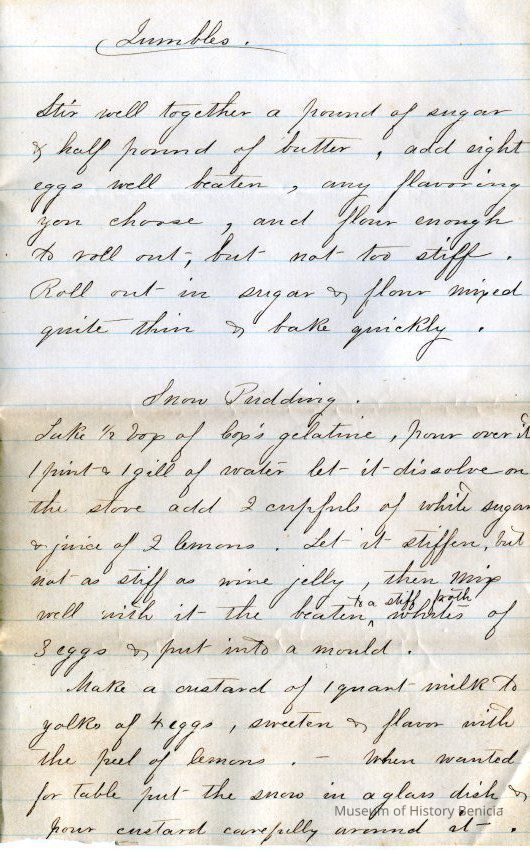 Jumbles.
Stir well together a pound of sugar
& half pound of butter, add eight
eggs well beaten, any flavoring
you choose, and flour enough
to roll out, but not too stiff.
Roll out in sugar & flour mixed
quite thin & bake quickly.
Snow Pudding.
Take 1/2 box of Cox's gelatine, pour over it
1 pint & 1 gill of water let it dissolve on
the stove add 2 cupfuls of white sugar
& juice of 2 lemons. Let it stiffen, but
not as stiff as wine jelly, then mix
to a stiff froth
well with it the beaten ^ whites of
3 eggs & put into a mould.
Make a custard of 1 quart milk to
yolks of 4 eggs, sweeten & flavor with
the peel of lemons. - When wanted
for table put the snow in a glass dish &
Museum of History Benicia
pour custard carefully around it.